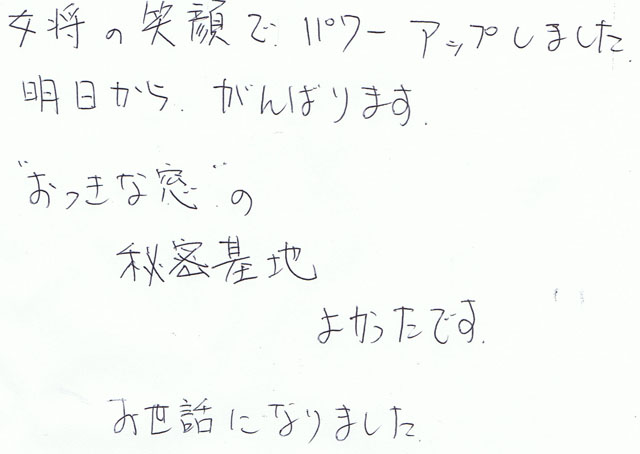 女将の笑顔で、パワーアップしました.
明日から、がんばります.
"おっきな窓"の
秘密基地
よかったです.
お世話になりました.